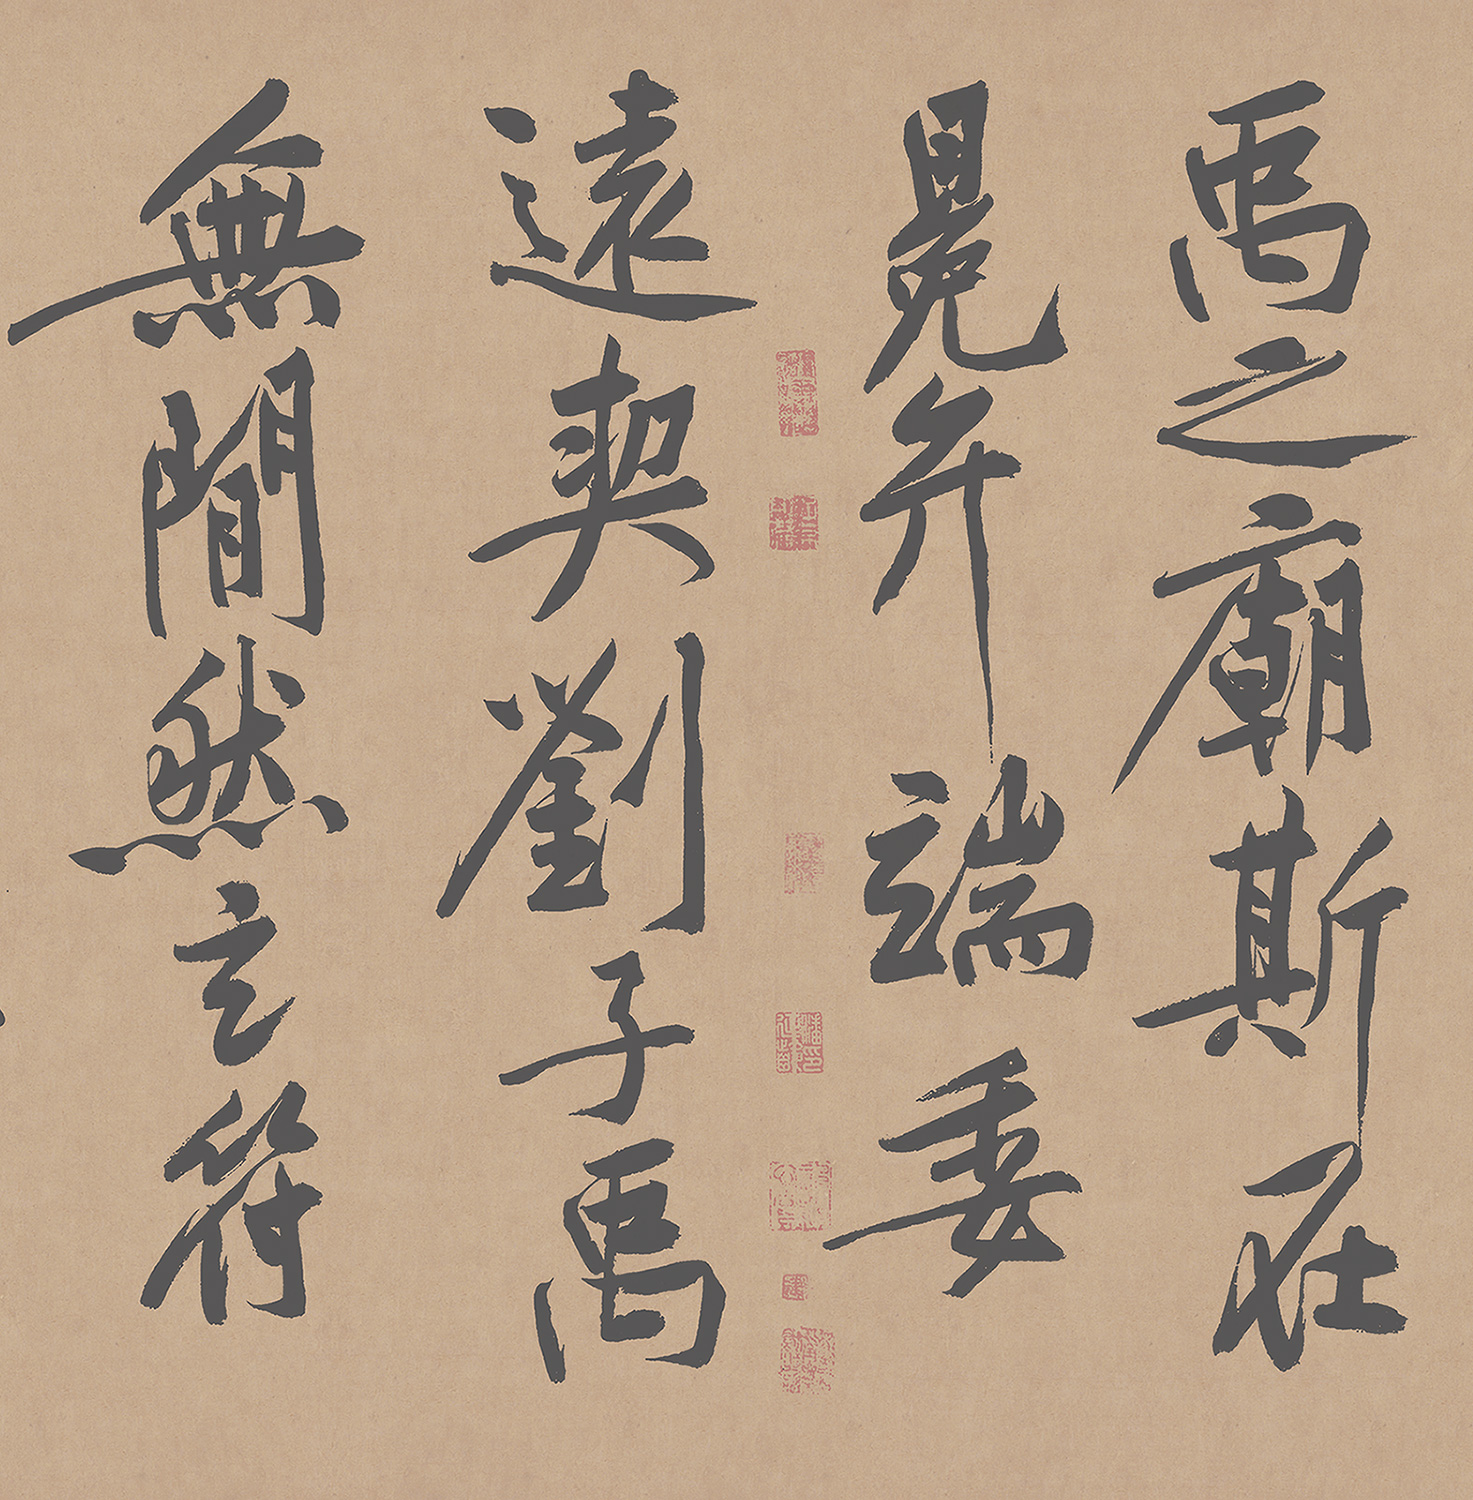 禹之廟斯在
冕弁端委
遠契劉子禹
無間然之符